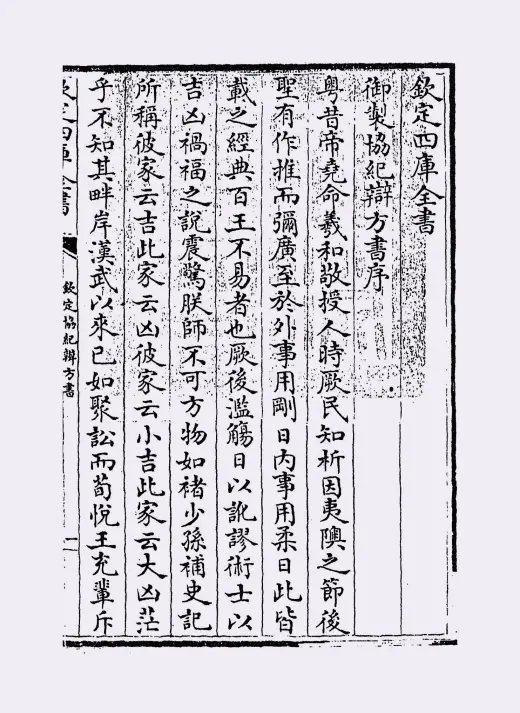 欽定四庫全書
御製協紀辯方書序
粤昔帝堯命羲和敬授人時厥民知析因夷隩之節後
聖有作推而彌廣至於外事用剛日内事用柔日此皆
載之經典百王不易者也厥後濫觴日以訛謬術士以
吉凶禍福之說震驚朕師不可方物如褚少孫補史記
所稱彼家云吉此家云凶彼家云小吉此家云大凶茫
乎不知其畔岸漢武以來已如聚訟而荀悅王充輩斥
欽定四庫全書
欽定協紀辨方書
一